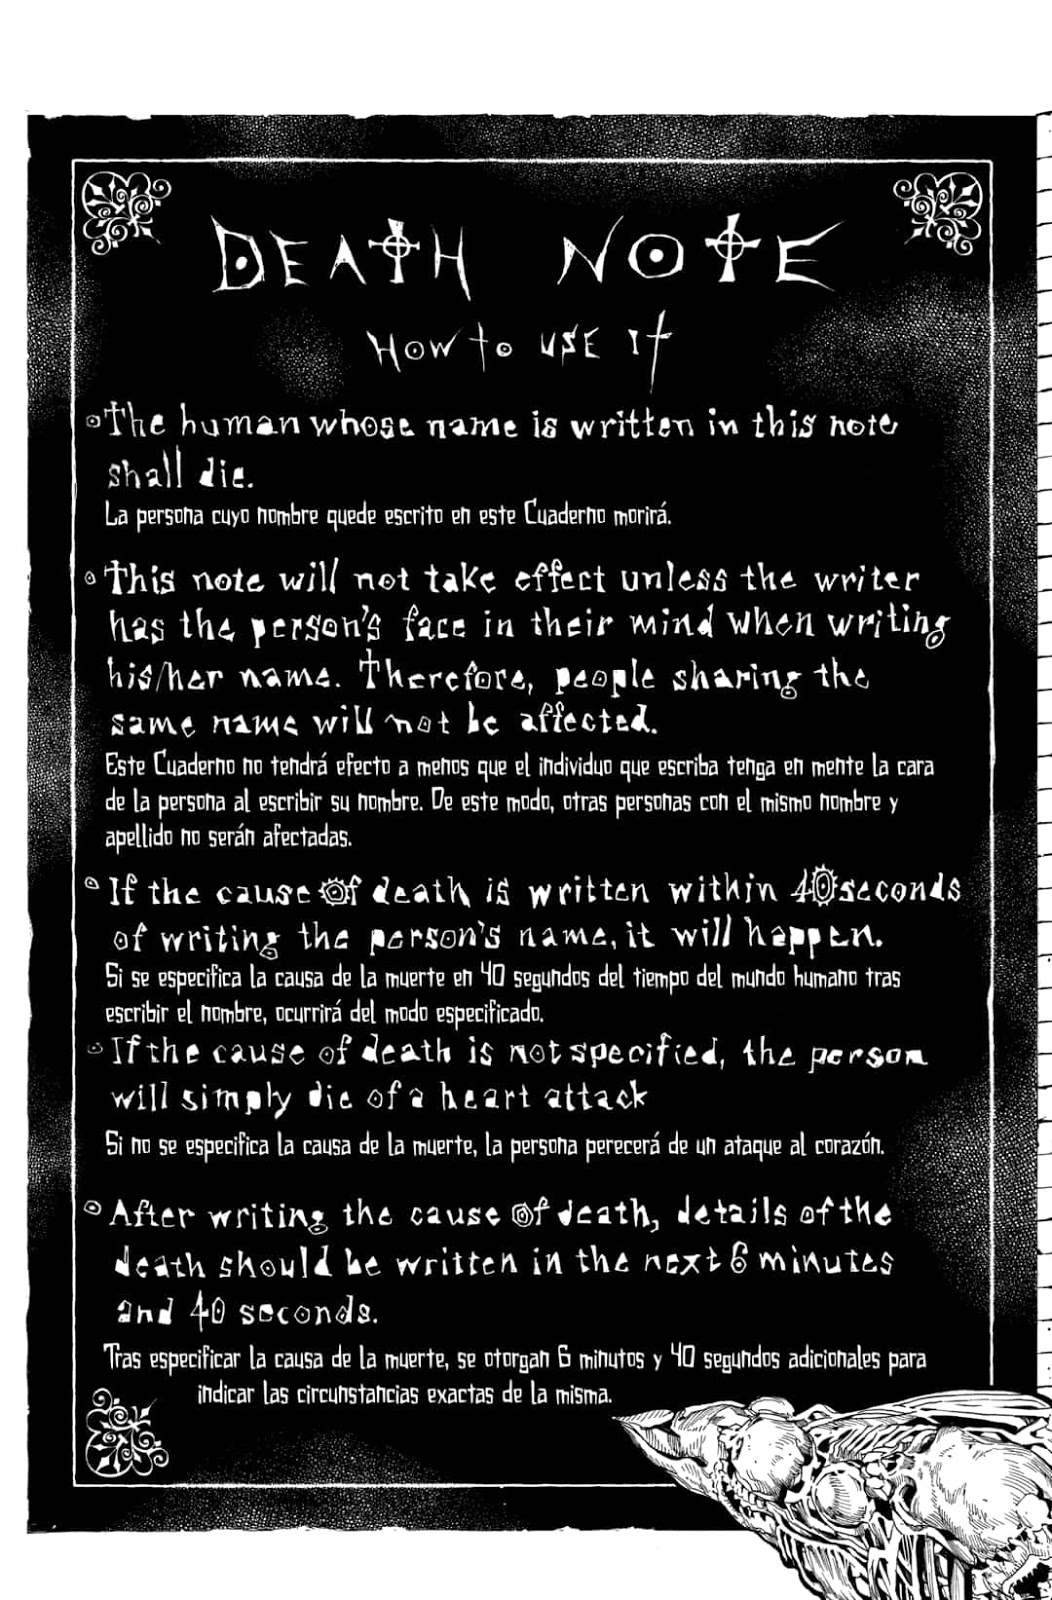 DEATH NOTE
HOW to USE It
The human whose name is written in this note
shall die.
La persona cuyo nombre quede escrito en este Cuaderno morirá.
This note will not take effect unless the writer
has the person's face in their mind when writing
his/her name. Therefore, people sharing the
same name will not be affected.
Este Cuaderno no tendrá efecto a menos que el individuo que escriba tenga en mente la cara
de la persona al escribir su nombre. De este modo, otras personas con el mismo nombre y
apellido no serán afectadas.
If the cause of death is written within 40 seconds
of writing the person's name, it will happen.
Si se especifica la causa de la muerte en 40 segundos del tiempo del mundo humano tras
escribir el nombre, ocurrirá del modo especificado.
If the cause of death is not specified, the person
will simply die of a heart attack
Si no se especifica la causa de la muerte, la persona perecerá de un ataque al corazón.
After writing the cause of death, details of the
death should be written in the next 6 minutes
and 40 seconds.
Tras especificar la causa de la muerte, se otorgan 6 minutos y 40 segundos adicionales para
indicar las circunstancias exactas de la misma.